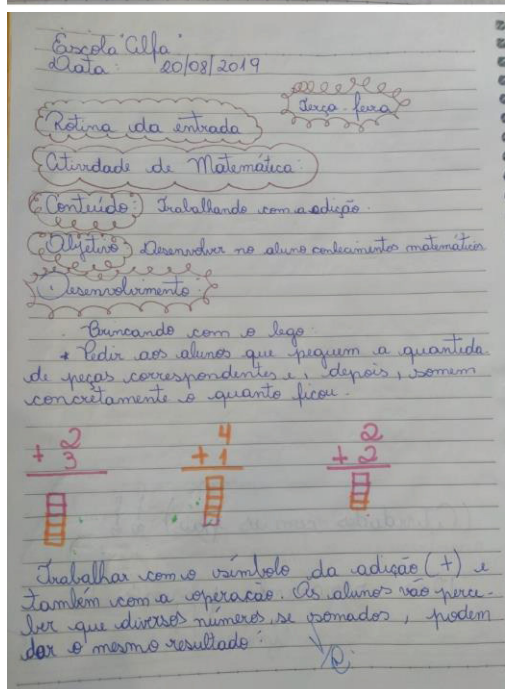 Escola "Alfa"
Data: 20/08/2019
Terça-feira
Rotina da entrada
Atividade de Matemática:
Conteúdo: Trabalhando com a adição.
Objetivo: Desenvolver no aluno conhecimentos matemáticos
Desenvolvimento:
. Brincando com o lego.
* Pedir aos alunos que peguem a quantida-
de de peças correspondentes e, depois, somem
concretamente o quanto ficou.
2 4 2
+ 3 + 1 + 2
Trabalhar com o símbolo da adição (+) e
também com a operacão. Os alunos vão perce-
ber que diversos números, se somados, podem
dar o mesmo resultado: